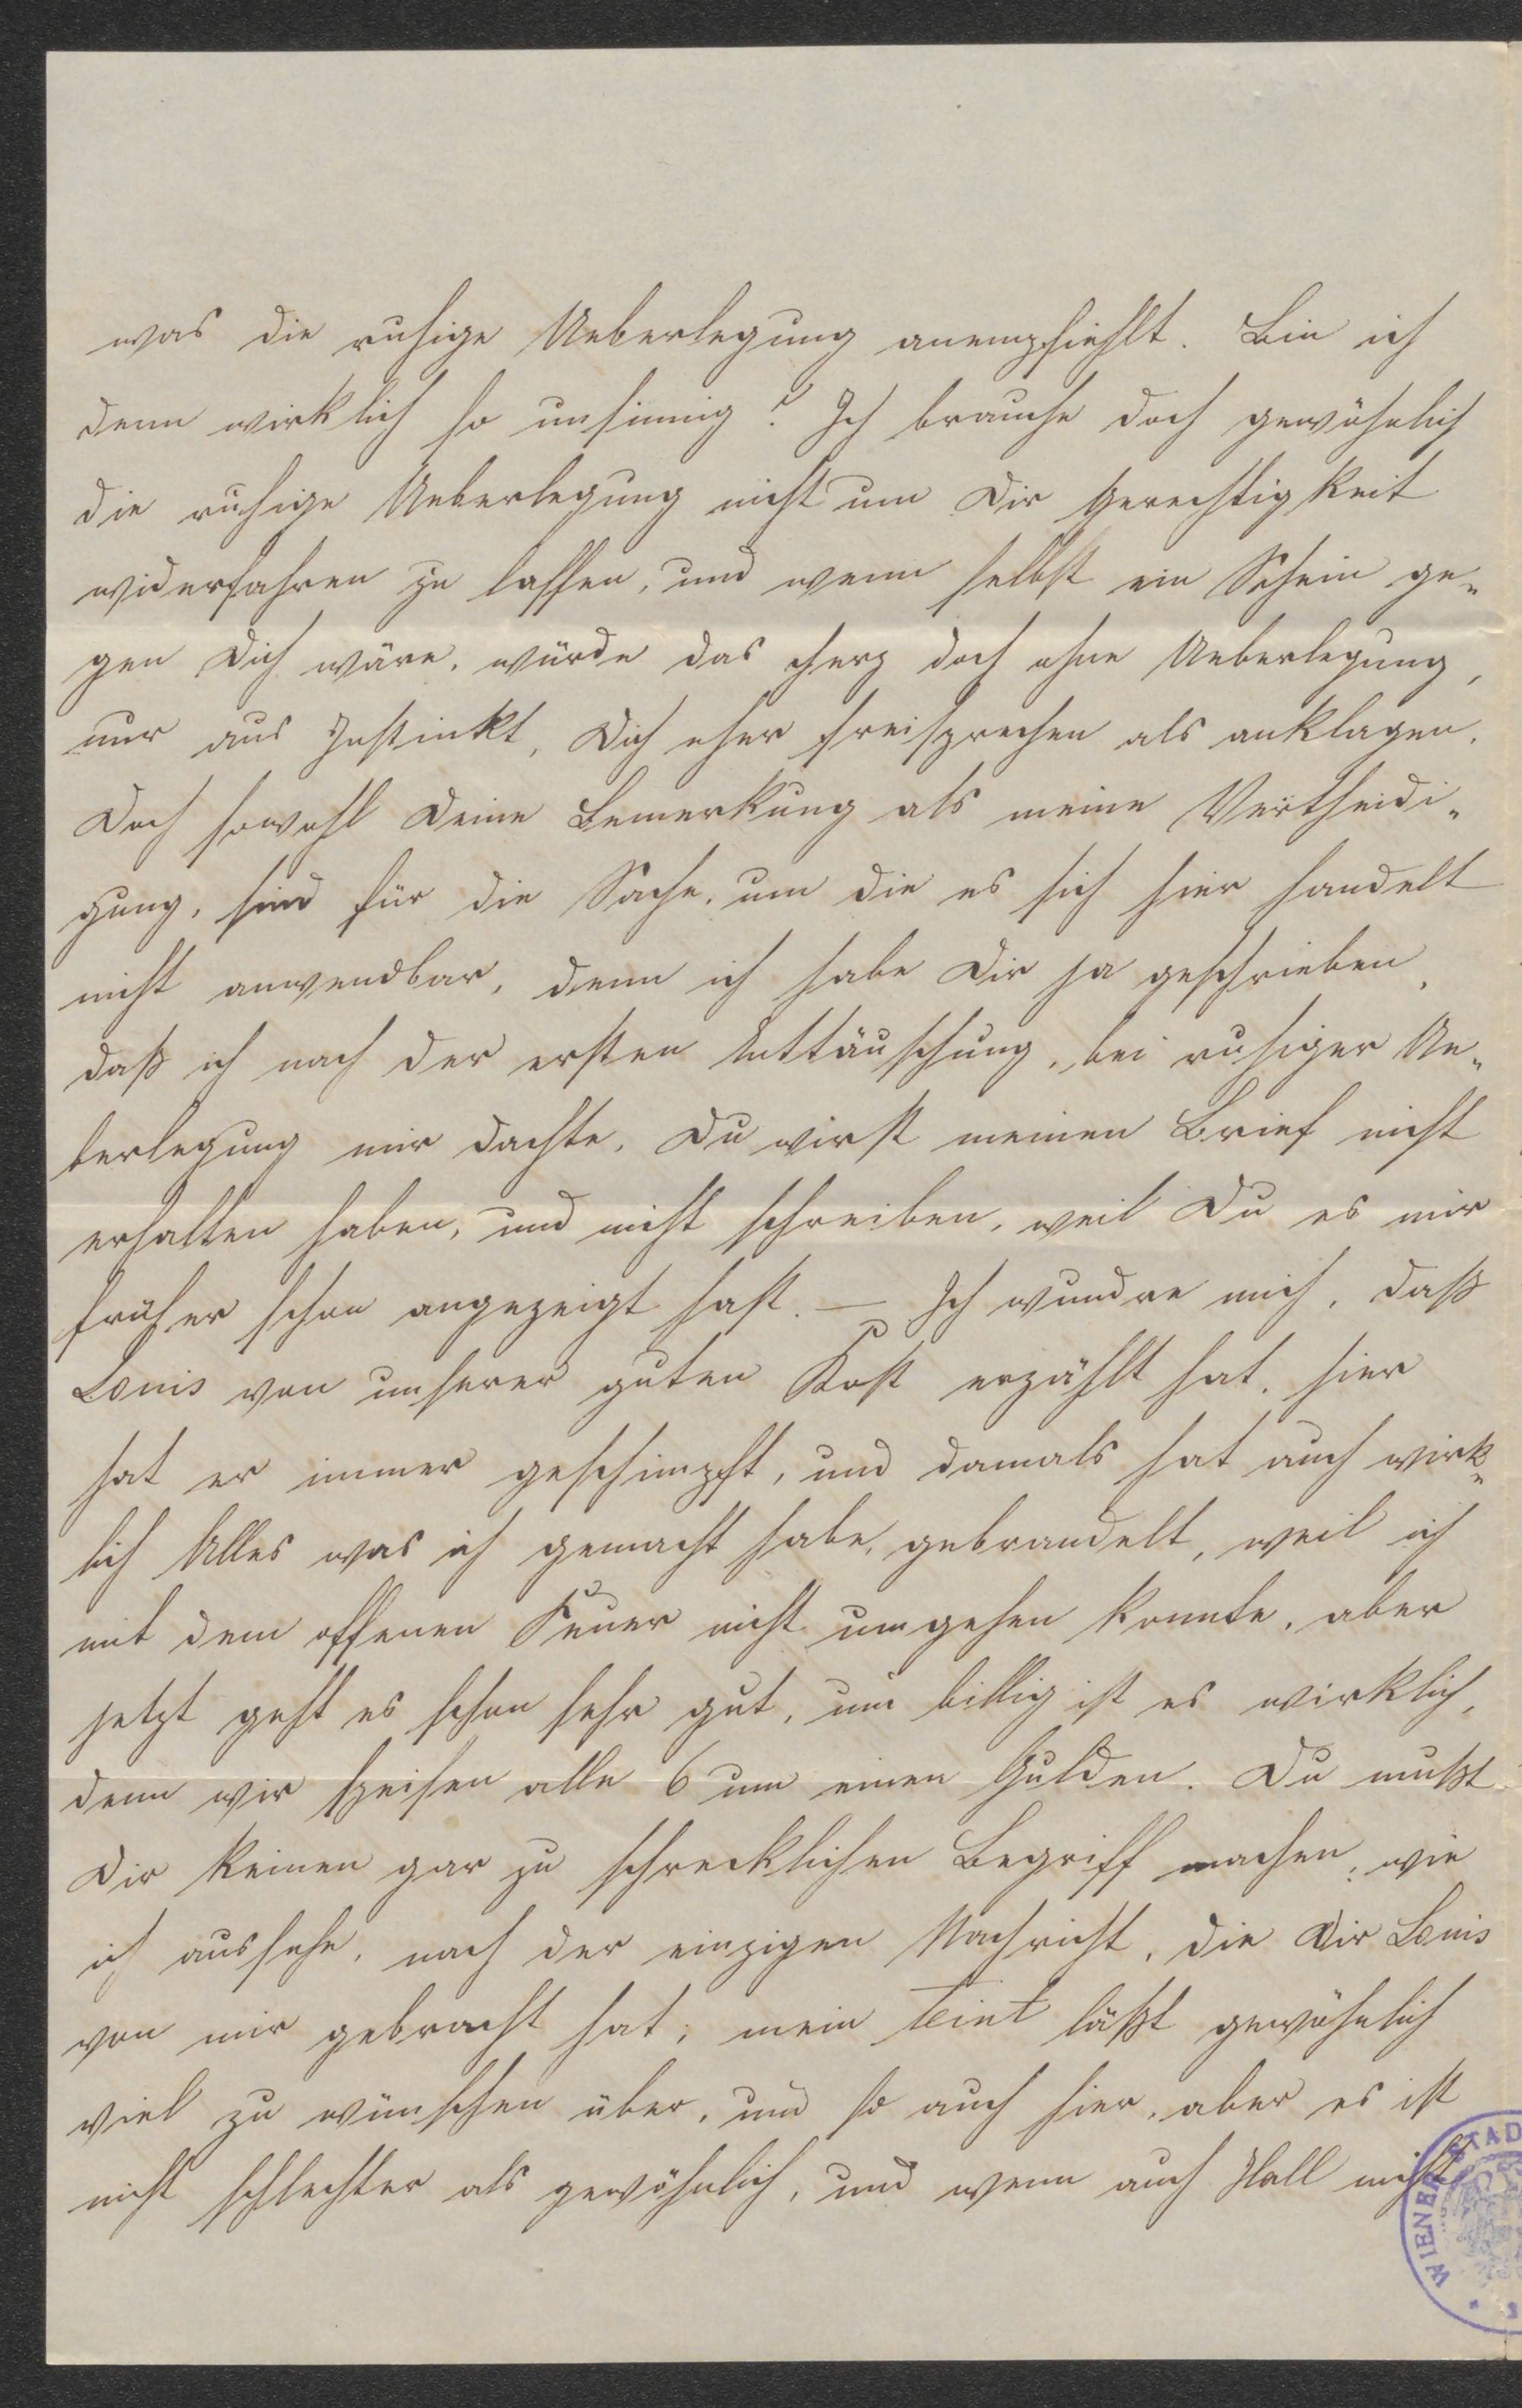 was die ruhige Ueberlegung anempfiehlt. Bin ich
denn wirklich so unsinnig? Ich brauche doch gewöhnlich
die ruhige Ueberlegung nicht um Dir Gerechtigkeit
widerfahren zu lassen, und wenn selbst ein Schein ge-
gen Dich wäre, würde das Herz doch ohne Ueberlegung,
nur aus Instinkt, Dich eher freisprechen als anklagen.
Doch sowohl Deine Bemerkung als meine Vertheidi-
gung, sind für die Sache, um die es sich hier handelt
nicht anwendbar, denn ich habe Dir ja geschrieben,
daß ich nach der ersten Enttäuschung, bei ruhiger Ue-
berlegung mir dachte, Du wirst meinen Brief nicht
erhalten haben, und nicht schreiben, weil Du es mir
früher schon angezeigt hast. — Ich wundre mich, daß
Louis von unserer guten Kost erzählt hat, hier
hat er immer geschimpft, und damals hat auch wirk-
lich Alles was ich gemacht habe, gebrandelt, weil ich
mit dem offenen Feuer nicht umgehen konnte, aber
jetzt geht es schon sehr gut, und billig ist es wirklich,
denn wir speisen alle 6 um einen Gulden. Du mußt
Dir keinen gar zu schrecklichen Begriff machen, wie
ich aussehe, nach der einzigen Nachricht, die Dir Louis
von mir gebracht hat; mein Teint läßt gewöhnlich
viel zu wünschen über, und so auch hier, aber es ist
nicht schlechter als gewöhnlich, und wenn auch Hall nicht
WIENER STAD